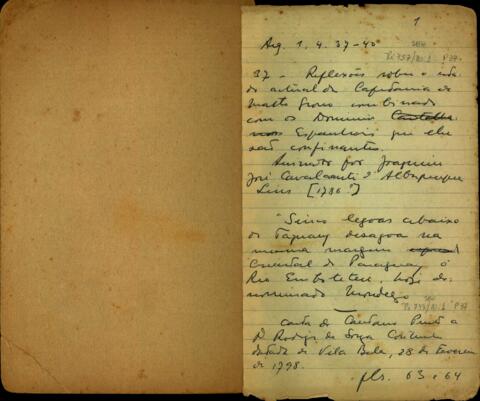 1
Arq. 1. 4. 37-40
37 - Reflexões sobre o esta-
do actual da Capitania de
Matto Grosso combinado
com os Dominios
Espanhóes que lhe
são confinantes.
Assinado por Joaquim
José Cavalcanti d'Albuquerque
Lins [1786?]
"Sinco legoas abaixo
do Taquary desagoa na
mesma margem
Oriental do Paraguay o
Rio Emboteteu, hoje de-
nominado Mondego
Carta de Caetano Pinto a
D. Rodrigo de Souza Coutinho
datada de Vila Bela, 28 de Fevereiro
de 1798.
fls. 63 e 64